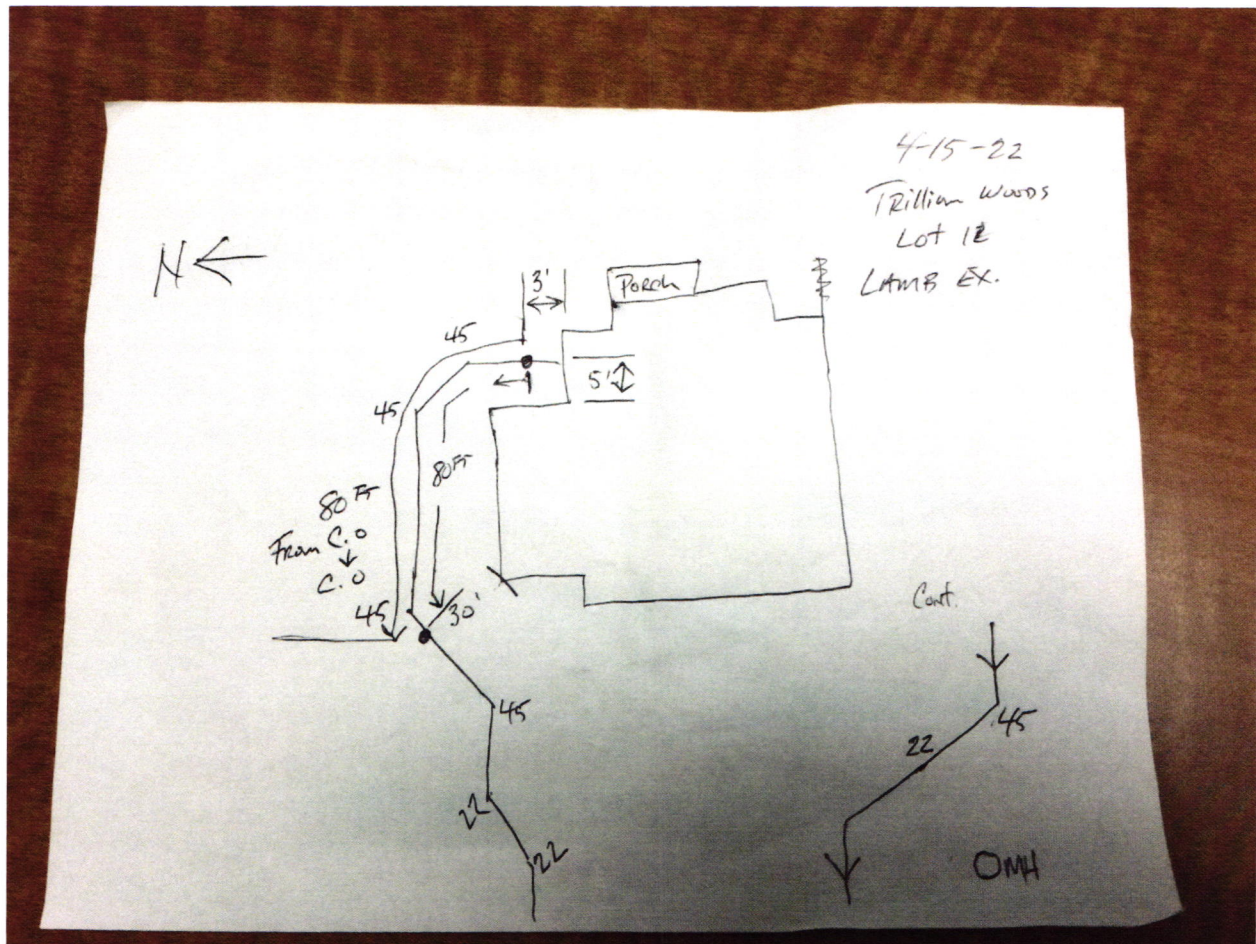 4-15-22
Trillium Woods
Lot
LAMB EX.
N
3'
Porch
45
5'
1
45
80 FT
80 FT
From C.O
C.O
45
30'
45
22
22
Cont.
45
22
OMH